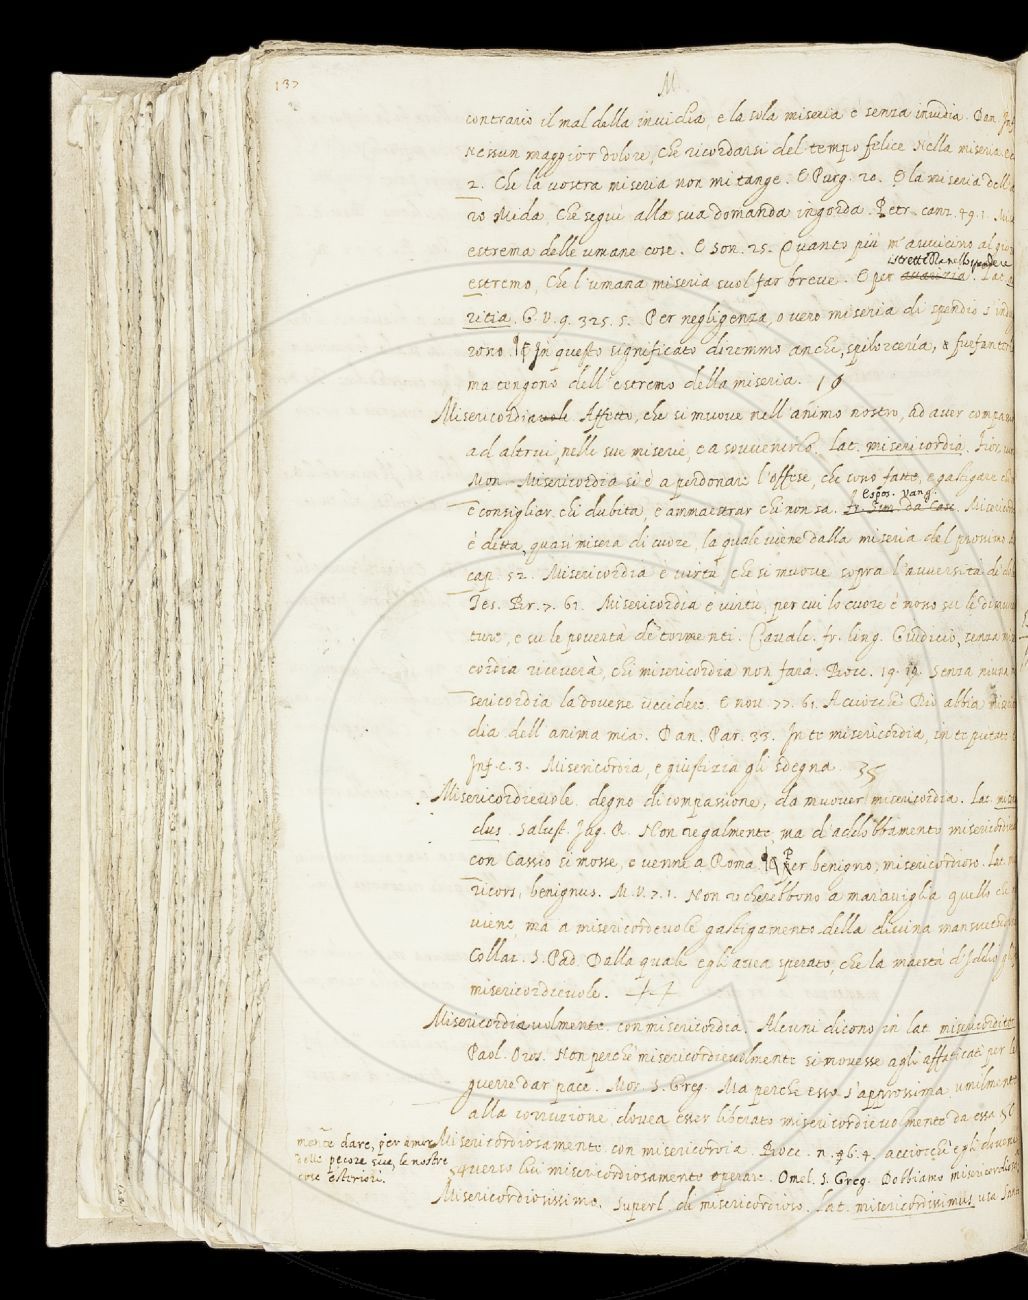 137
M.
contrario il mal della invidia, e la sola miseria è senza invidia. Dan. Inf.
Nessun maggior dolore, che ricordarsi del tempo felice Nella miseria. E
2. Che la vostra miseria non mi tange. E Purg. 20. E la miseria dell'
ro Mida Che seguì alla sua domanda ingorda. Petr. canz. 49. 1.
estrema delle umane cose. E Son. 25. Quanto più m'avvicino al
strettezza nello spendere
estremo, Che l'umana miseria suol far breve. E per avarizia. Lat.
ritia. G. V. 9. 325. 5. Per negligenza, o vero miseria di spendio s'
rono. In questo significato diremmo anche, spilorceria, &
ma tengono dell'estremo della miseria. 16
Misericordia Affetto, che si muove nell'animo nostro, ad aver
ad altrui, nelle sue miserie, e a sovvenirlo. Lat. misericordia. Fior.
Mon. Misericordia si è a perdonare l'offese, che sono fatte, e gastigare
Espos. Vang.
e consigliar chi dubita, e ammaestrar chi non sa. fr. Sim. da Casc.
è detta, quasi misera di cuore, la quale viene dalla miseria del prossimo
cap. 52. Misericordia è virtù che si muove sopra l'avversità di
Tes. Br. 7. 61. Misericordia è virtù, per cui lo cuore è mosso su le
ture, e su le povertà de' tormenti. Cavalc. fr. ling. Giudicio, senza
cordia riceverà, chi misericordia non farà. Bocc. 19. 19. Senza niuna
sericordia la dovesse uccidere. E nov. 77. 61. Acciocchè Dio abbia
dia dell'anima mia. Dan. Par. 33. In te misericordia, in te pietate
Inf. c. 3. Misericordia, e giustizia gli sdegna. 35
Misericordievole. degno di compassione, da muover misericordia. Lat.
dus. Salust. Jug. R. Non regalmente, ma d'addobbamento
con Cassio si mosse, e venne a Roma. Per benigno, misericordioso. Lat.
ricors, benignus. M. V. 7. 1. Non recherebbono a maraviglia quello
viene ma a misericordevole gastigamento della divina
Collaz. S. Pad. Dalla quale egli avea sperato, che la maestà d'Iddio
misericordievole. 44
Misericordiavolmente. con misericordia. Alcuni dicono in lat.
Paol. Oros. Non perchè misericordievolmente si movesse agli affaticati per
guerre dar pace. Mor. S. Greg. Ma perchè esso s'approssima umilmente
alla corruzione, dovea esser liberato misericordievolmente da essa
Misericordiosamente. con misericordia. Bocc. n. 46. 4. acciocchè egli
verso lui misericordiosamente operare. Omel. S. Greg. Dobbiamo
mente dare, per amor
delle pecore sue, le nostre
cose esteriori.
Misericordiosissimo. Superl. di misericordioso. Lat. misericordissimus.